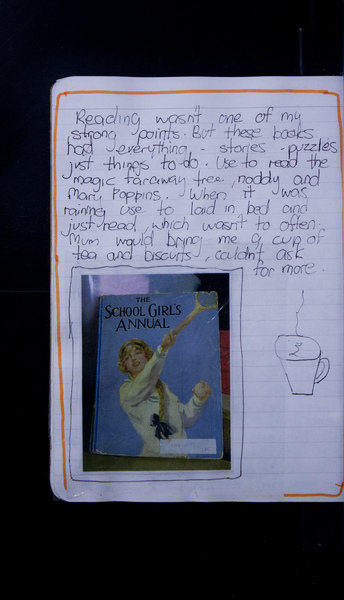 Reading wasn't one of my
strong points. But these books
had everything - stories - puzzles
just things to do. Use to read the
magic faraway tree, noddy and
Mary Poppins. When it was
raining use to laid in bed and
just read, which wasn't to often.
Mum would bring me a cup of
tea and biscuits, couldn't ask
for more.
THE
SCHOOL GIRL'S
ANNUAL